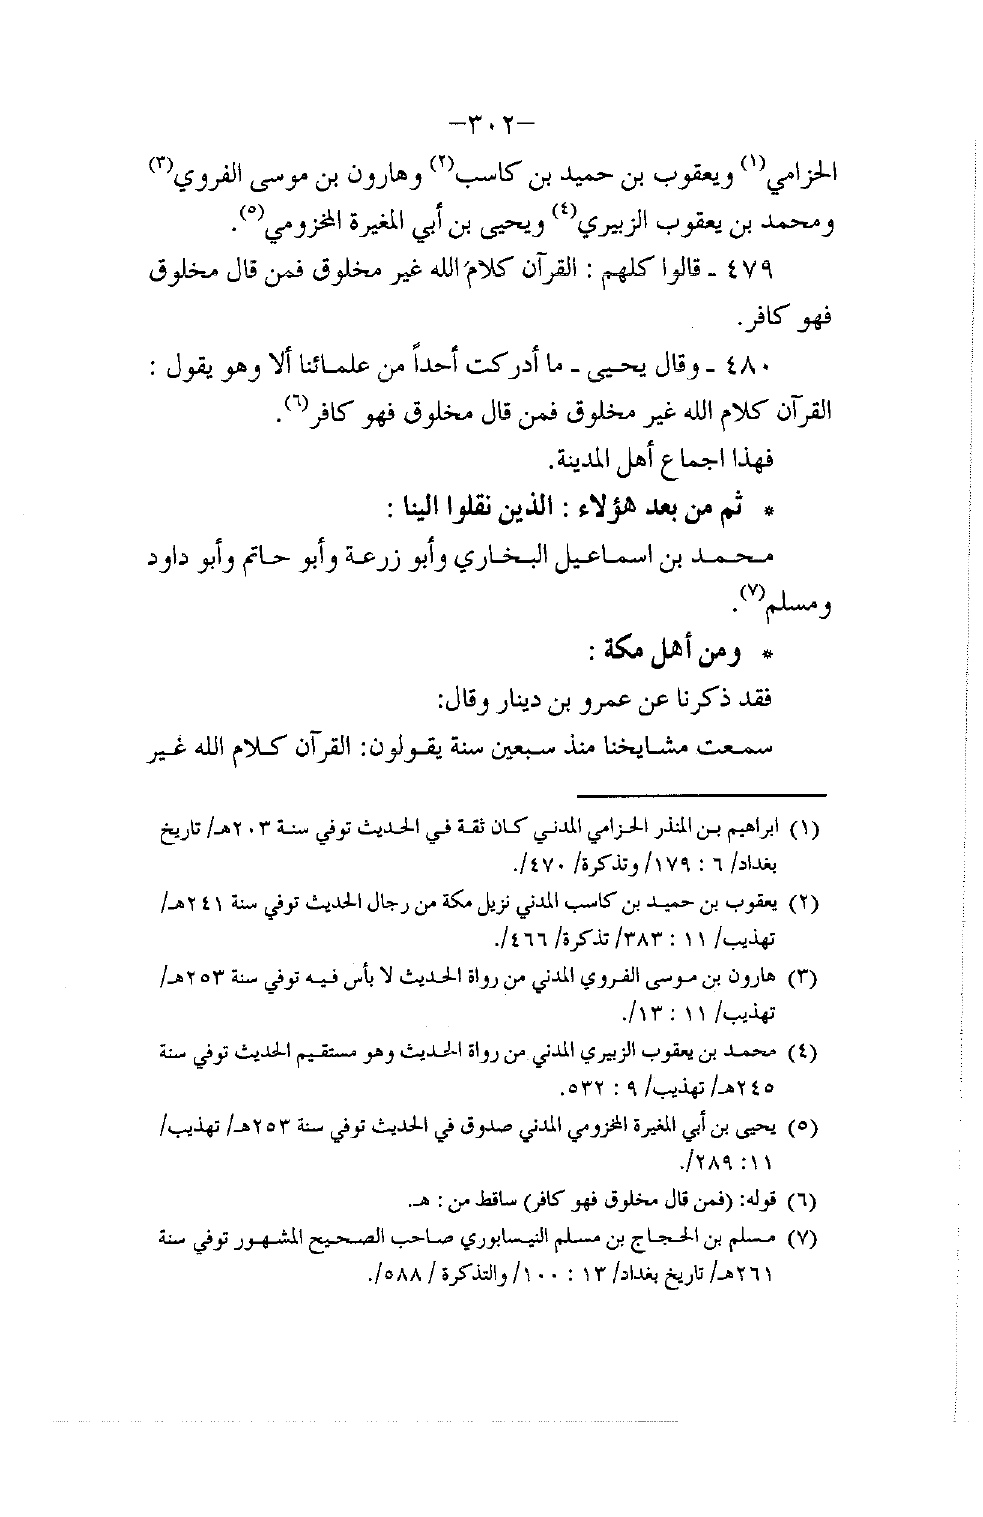 –٣٠٢–
الحزامي(١) ويعقوب بن حميد بن كاسب(٢) وهارون بن موسى الفروي(٣)
ومحمد بن يعقوب الزبيري(٤) ويحيى بن أبي المغيرة المخزومي(٥).
٤٧٩ ـ قالوا كلهم : القرآن كلامُ الله غير مخلوق فمن قال مخلوق
فهو كافر.
٤٨٠ ـ وقال يحيى ـ ما أدركت أحداً من علمائنا ألا وهو يقول :
القرآن كلام الله غير مخلوق فمن قال مخلوق فهو كافر(٦).
فهذا اجماع أهل المدينة.
* ثم من بعد هؤلاء : الذين نقلوا الينا :
محمد بن اسماعيل البخاري وأبو زرعة وأبو حاتم وأبو داود
ومسلم(٧).
* ومن أهل مكة :
فقد ذكرنا عن عمرو بن دينار وقال:
سمعت مشايخنا منذ سبعين سنة يقولون: القرآن كلام الله غير
(١) ابراهيم بن المنذر الحزامي المدني كان ثقة في الحديث توفي سنة ٢٠٣هـ/ تاريخ
بغداد/ ٦ : ١٧٩/ وتذكرة/ ٤٧٠/.
(٢) يعقوب بن حميد بن كاسب المدني نزيل مكة من رجال الحديث توفي سنة ٢٤١هـ/
تهذيب/ ١١ : ٣٨٣/ تذكرة/ ٤٦٦/.
(٣) هارون بن موسى الفروي المدني من رواة الحديث لا بأس فيه توفي سنة ٢٥٣هـ/
تهذيب/ ١١ : ١٣/.
(٤) محمد بن يعقوب الزبيري المدني من رواة الحديث وهو مستقيم الحديث توفي سنة
٢٤٥هـ/ تهذيب/ ٩ : ٥٣٢.
(٥) يحيى بن أبي المغيرة المخزومي المدني صدوق في الحديث توفي سنة ٢٥٣هـ/ تهذيب/
١١: ٢٨٩/.
(٦) قوله: (فمن قال مخلوق فهو كافر) ساقط من : هـ.
(٧) مسلم بن الحجاج بن مسلم النيسابوري صاحب الصحيح المشهور توفي سنة
٢٦١هـ/ تاريخ بغداد/ ١٣ : ١٠٠/ والتذكرة / ٥٨٨/.